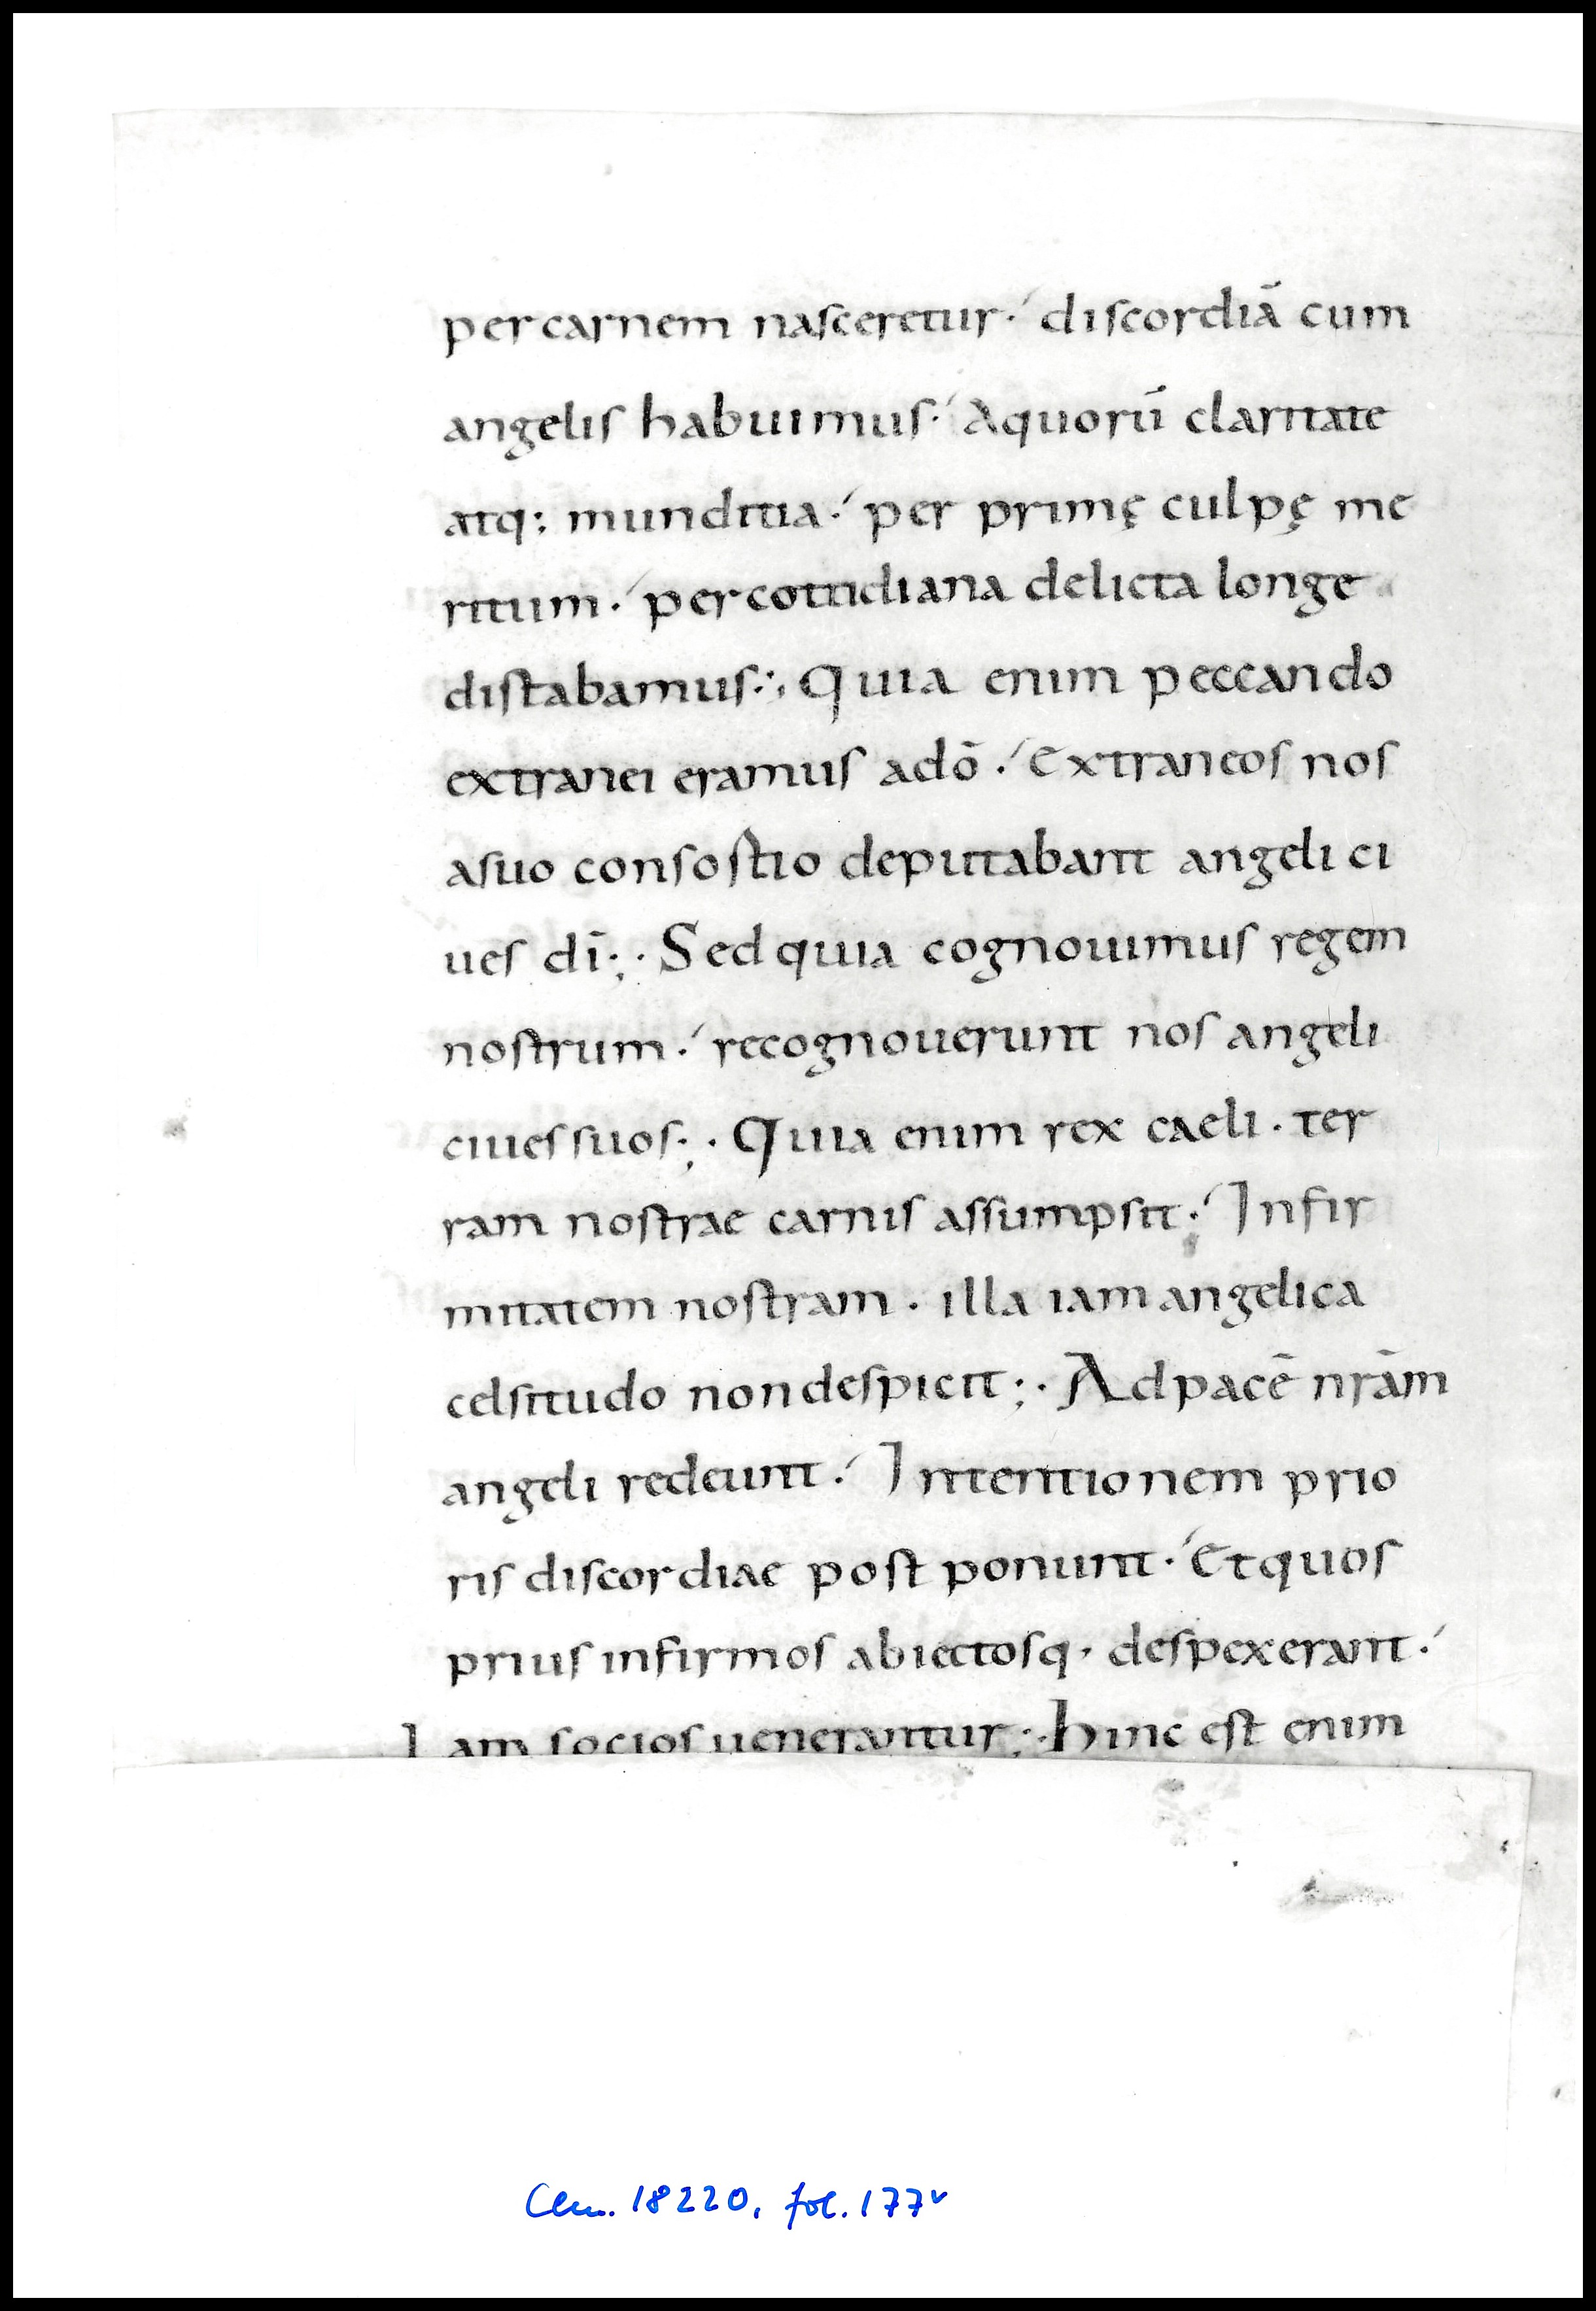 per carnem nasceretur. discordiā cum
angelis habuimus. Aquorū claritate
atq: munditia. per primę culpę me
ritum. per cottidiana delicta longe
distabamus:, Quia enim peccando
extranei eramus adō. Extraneos nos
asuo consostio deputtabant angeli ci
ues dī;. Sed quia cognouimus regem
nostrum. recognouerunt nos angeli
ciues suos;. Quia enim rex caeli. ter
ram nostrae carnis assumpsit. Infir
mitatem nostram. illa iam angelica
celsitudo non despicit;. Ad pacē nrām
angeli redeunt. Intentionem prio
ris discordiae post ponunt. Et quos
prius infirmos abiectosq. despexerant.
Iam socios uenerantur;. hinc est enim
Clm. 18220, fol. 177v